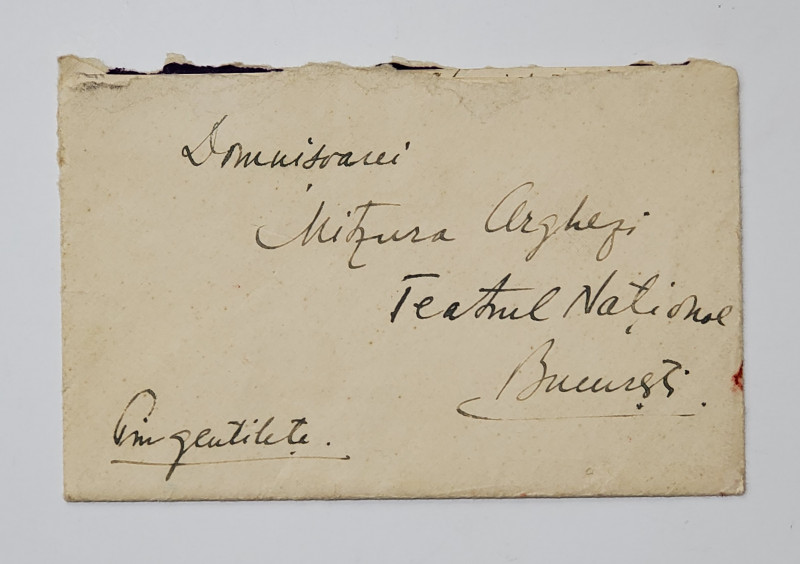 Domnisoarei
Mitzura Arghezi
Teatrul Național
București.
Prin gentilețe.